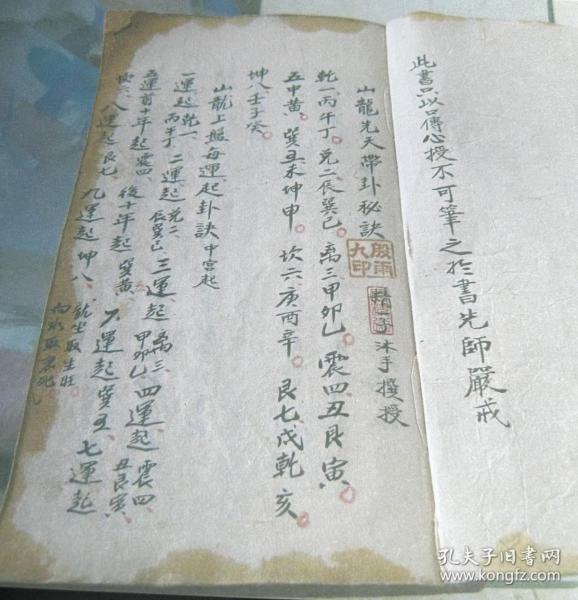 此書只以口傳心授不可筆之於書先師嚴戒
山龍先天帶卦秘訣 殷雨九印 精一子 沐手撰授
乾一、丙午丁。兌二、辰巽巳。離三甲卯乙。震四、丑艮寅。
五中黃。巽五未坤申。坎六、庚酉辛。艮七、戌乾亥
坤八壬子癸。
山龍上盤每運起卦訣 中宮起
一運起乾一、丙午丁 二運起兌二、辰巽巳 三運起離三、甲卯乙 四運起震四、丑艮寅
五運前十年起震四、後十年起巽黃 六運起巽五 七運起
坎六、八運起艮七 九運起坤八
龍坐取生旺
向水取衰死
孔夫子旧书网
www.kongfz.com